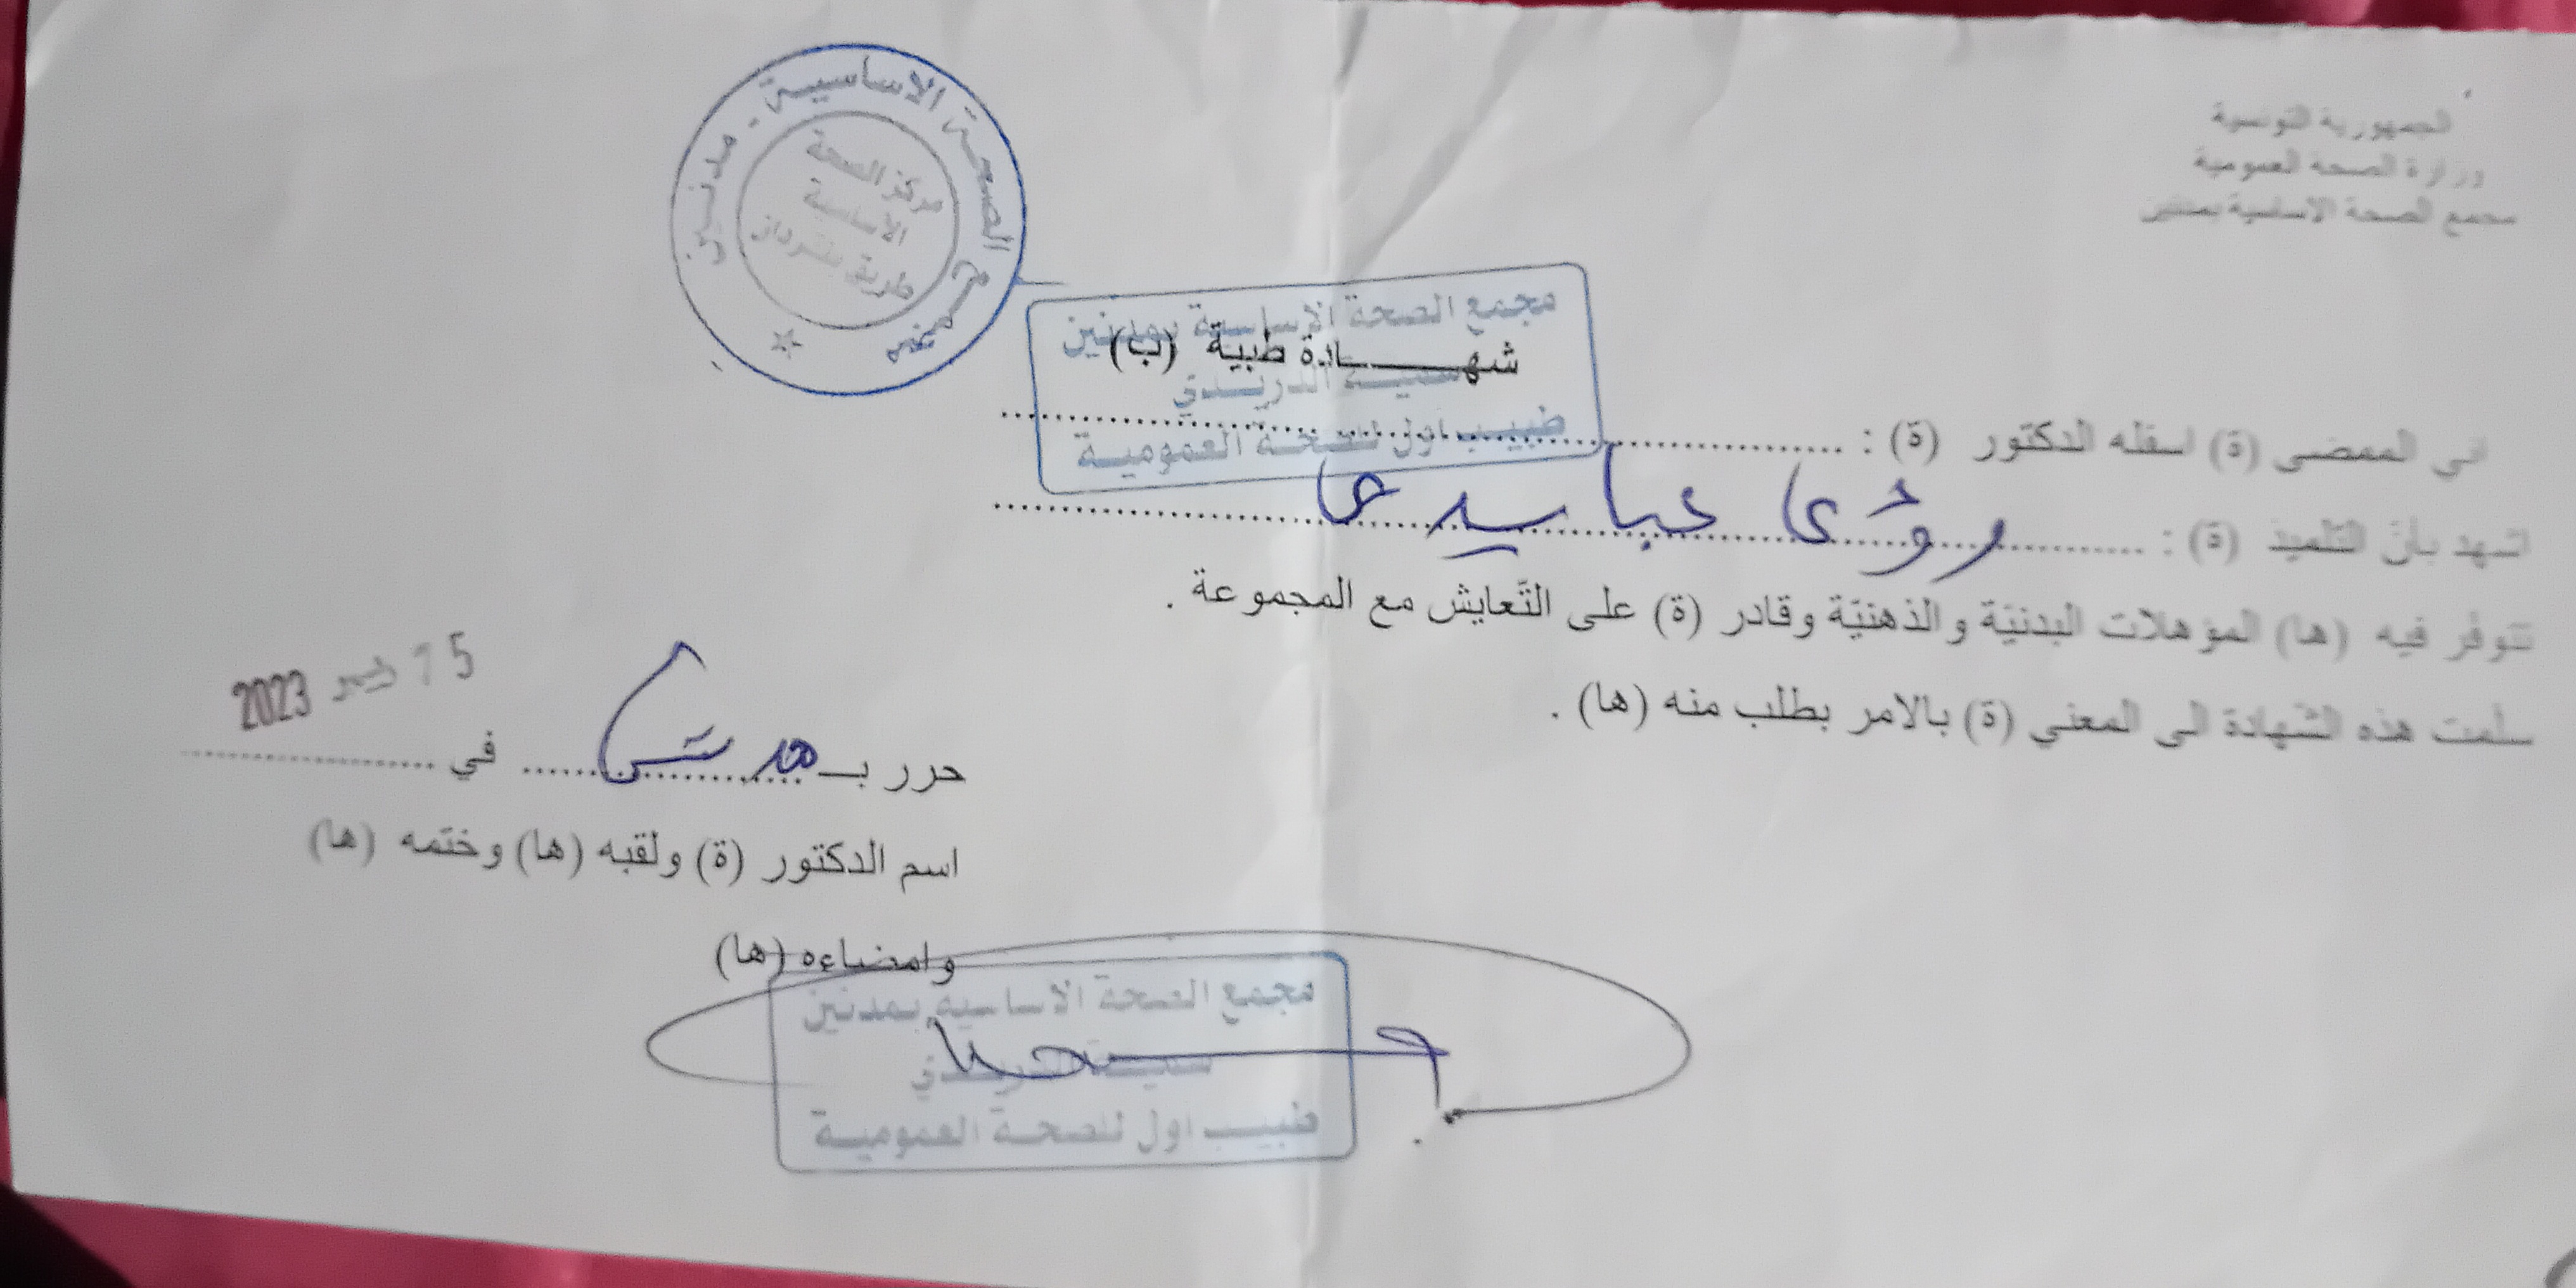 الجمهورية التونسية
وزارة الصحة العمومية
مجمع الصحة الاساسية بمدنين
مجمع الصحة الاساسية - مدنين
مركز الصحة
الاساسية
طريق بنقردان
مجمع الصحة الاساسية بمدنين
شهـــــــادة طبية (ب)
الدريـدي
طبيب اول للصحة العمومية
اني الممضى (ة) اسفله الدكتور (ة) :
اشهد بأن التلميذ (ة) : رؤى عبا
تتوفر فيه (ها) المؤهلات البدنيّة والذهنيّة وقادر (ة) على التّعايش مع المجموعة .
سلمت هذه الشهادة الى المعني (ة) بالامر بطلب منه (ها) .
حرر بـ مدنين في 15 2023
اسم الدكتور (ة) ولقبه (ها) وختمه (ها)
وامضاءه (ها)
مجمع الصحة الاساسية بمدنين
الدريـدي
طبيب اول للصحة العمومية